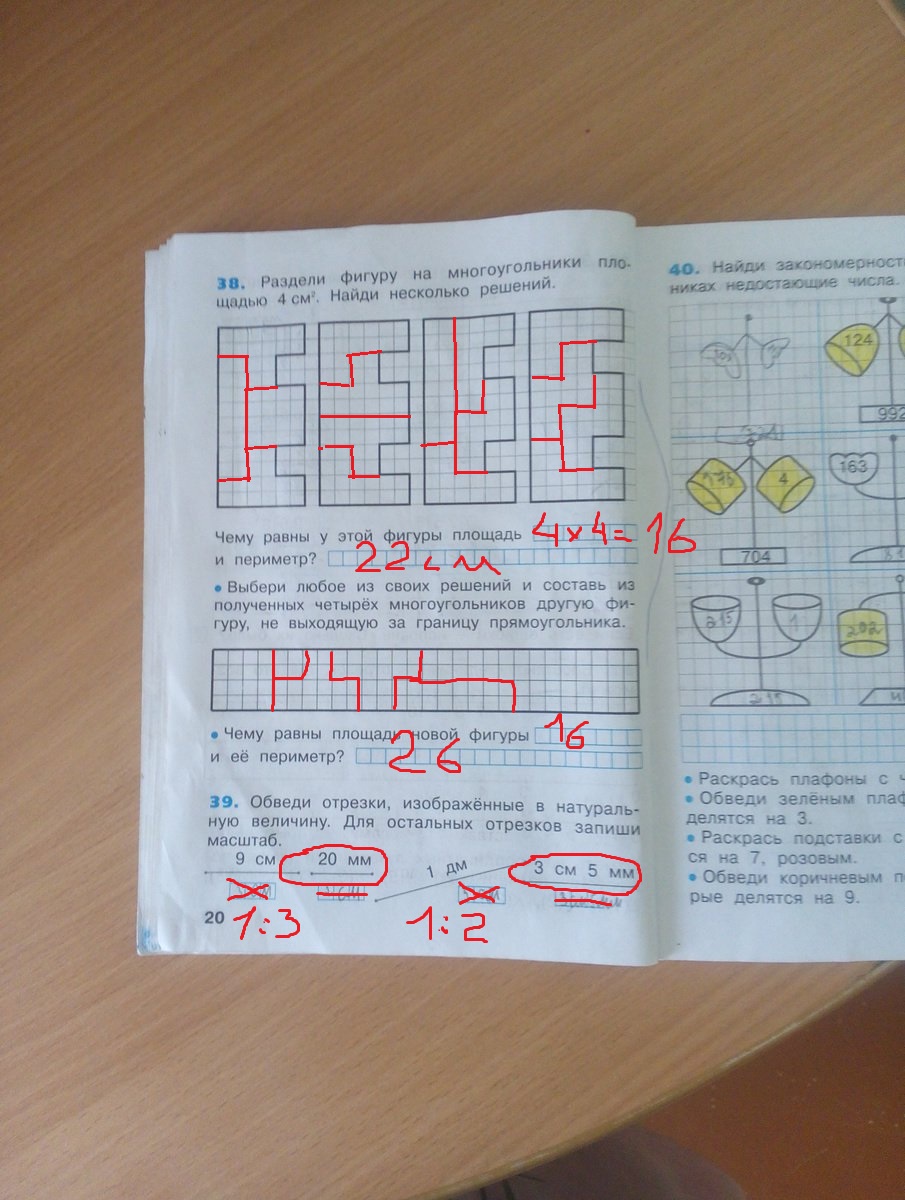 38. Раздели фигуру на многоугольники пло-
щадью 4 см². Найди несколько решений.
Чему равны у этой фигуры площадь 4×4=16
и периметр? 22 см
• Выбери любое из своих решений и составь из
полученных четырёх многоугольников другую фи-
гуру, не выходящую за границу прямоугольника.
• Чему равны площадь новой фигуры 16
и её периметр? 26
39. Обведи отрезки, изображённые в натураль-
ную величину. Для остальных отрезков запиши
масштаб.
9 см 20 мм 1 дм 3 см 5 мм
1:3 1:2
20
40. Найди закономерност
никах недостающие числа.
124
992
4
163
704
315 1
202
• Раскрась плафоны с ч
• Обведи зелёным плаф
делятся на 3.
• Раскрась подставки с
ся на 7, розовым.
• Обведи коричневым п
рые делятся на 9.